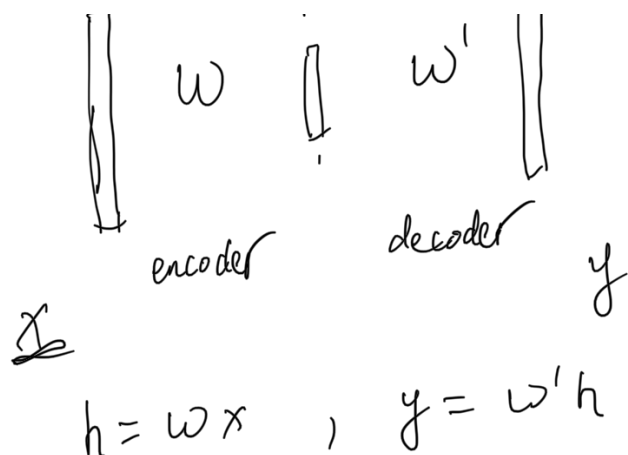 w w'
encoder decoder
x y
h = wx , y = w'h